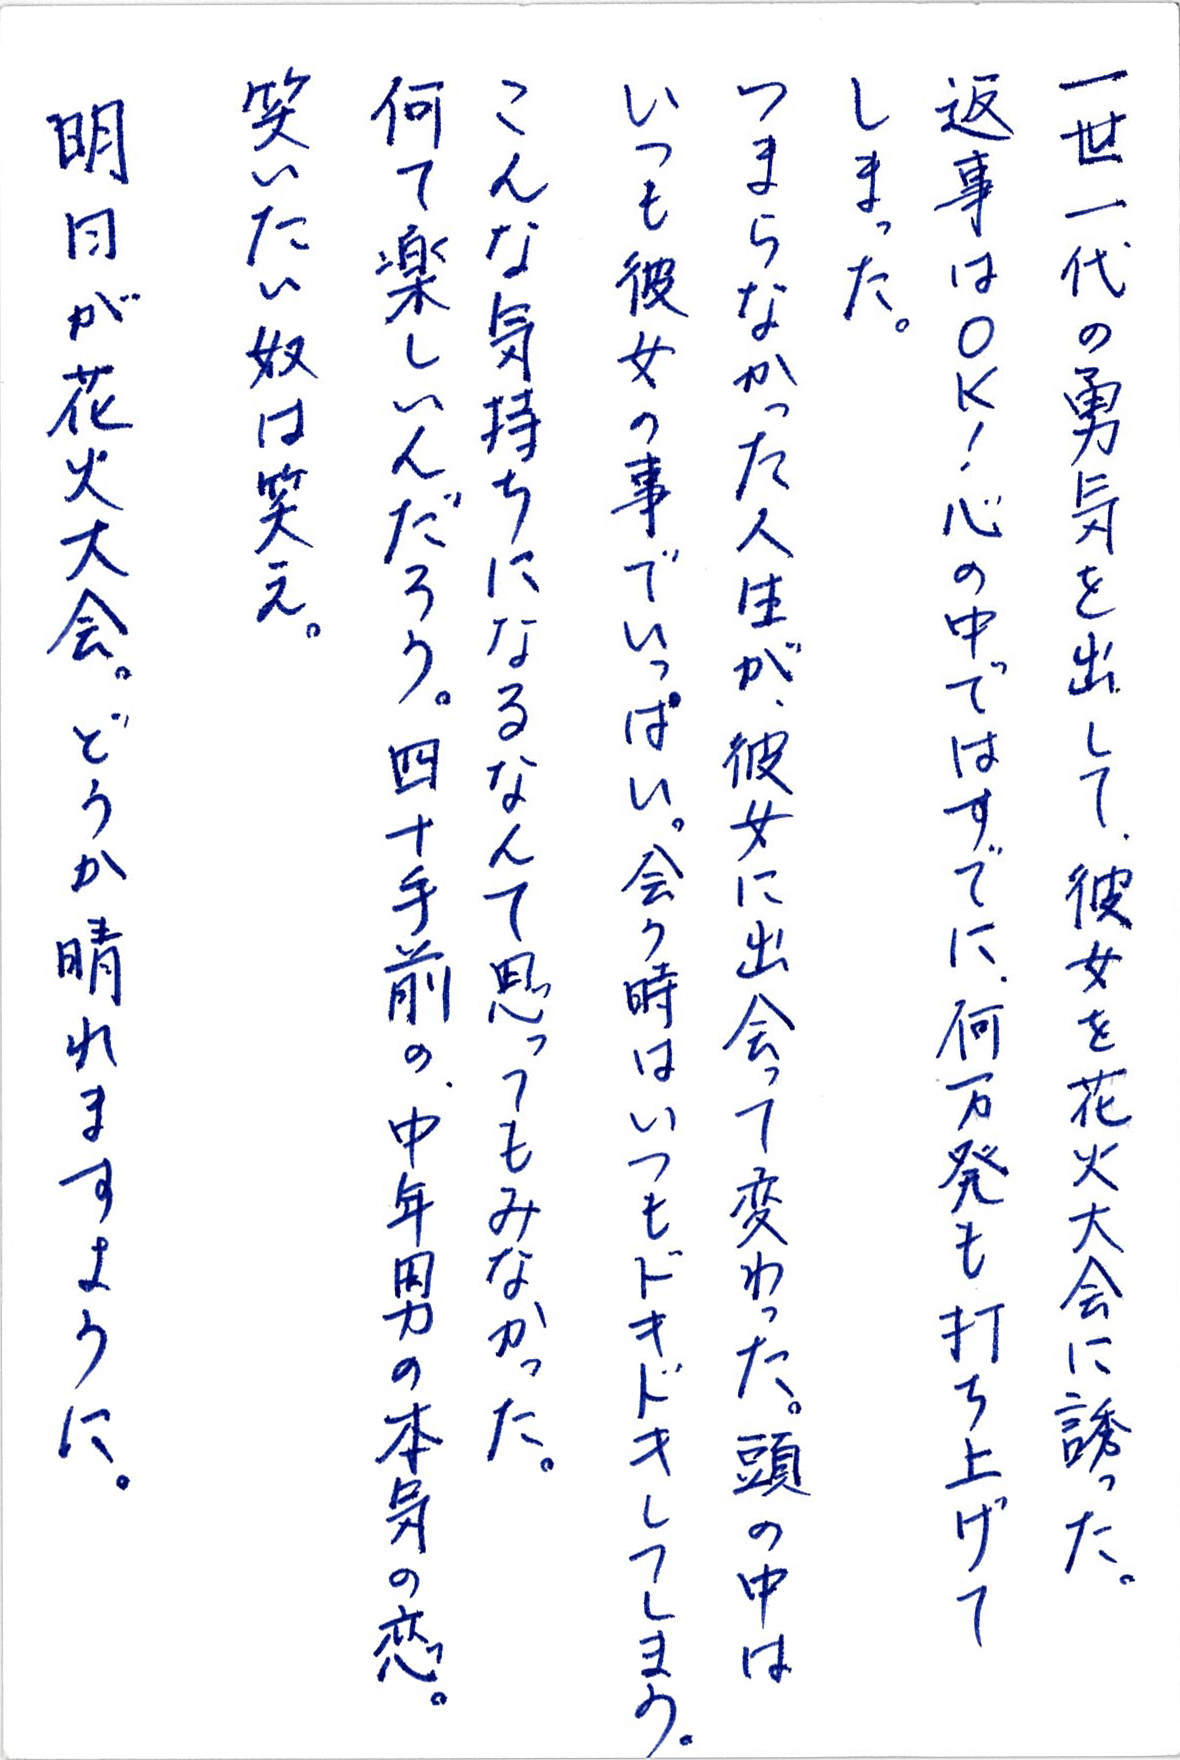 一世一代の勇気を出して、彼女を花火大会に誘った。
返事はOK！心の中ではすでに、何万発も打ち上げて
しまった。
つまらなかった人生が、彼女に出会って変わった。頭の中は
いつも彼女の事でいっぱい。会う時はいつもドキドキしてしまう。
こんな気持ちになるなんて思ってもみなかった。
何て楽しいんだろう。四十手前の、中年男の本気の恋。
笑いたい奴は笑え。
明日が花火大会。どうか晴れますように。